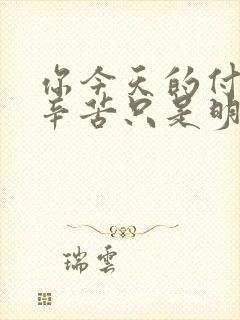 你今天的付
辛苦只是明
瑞雲